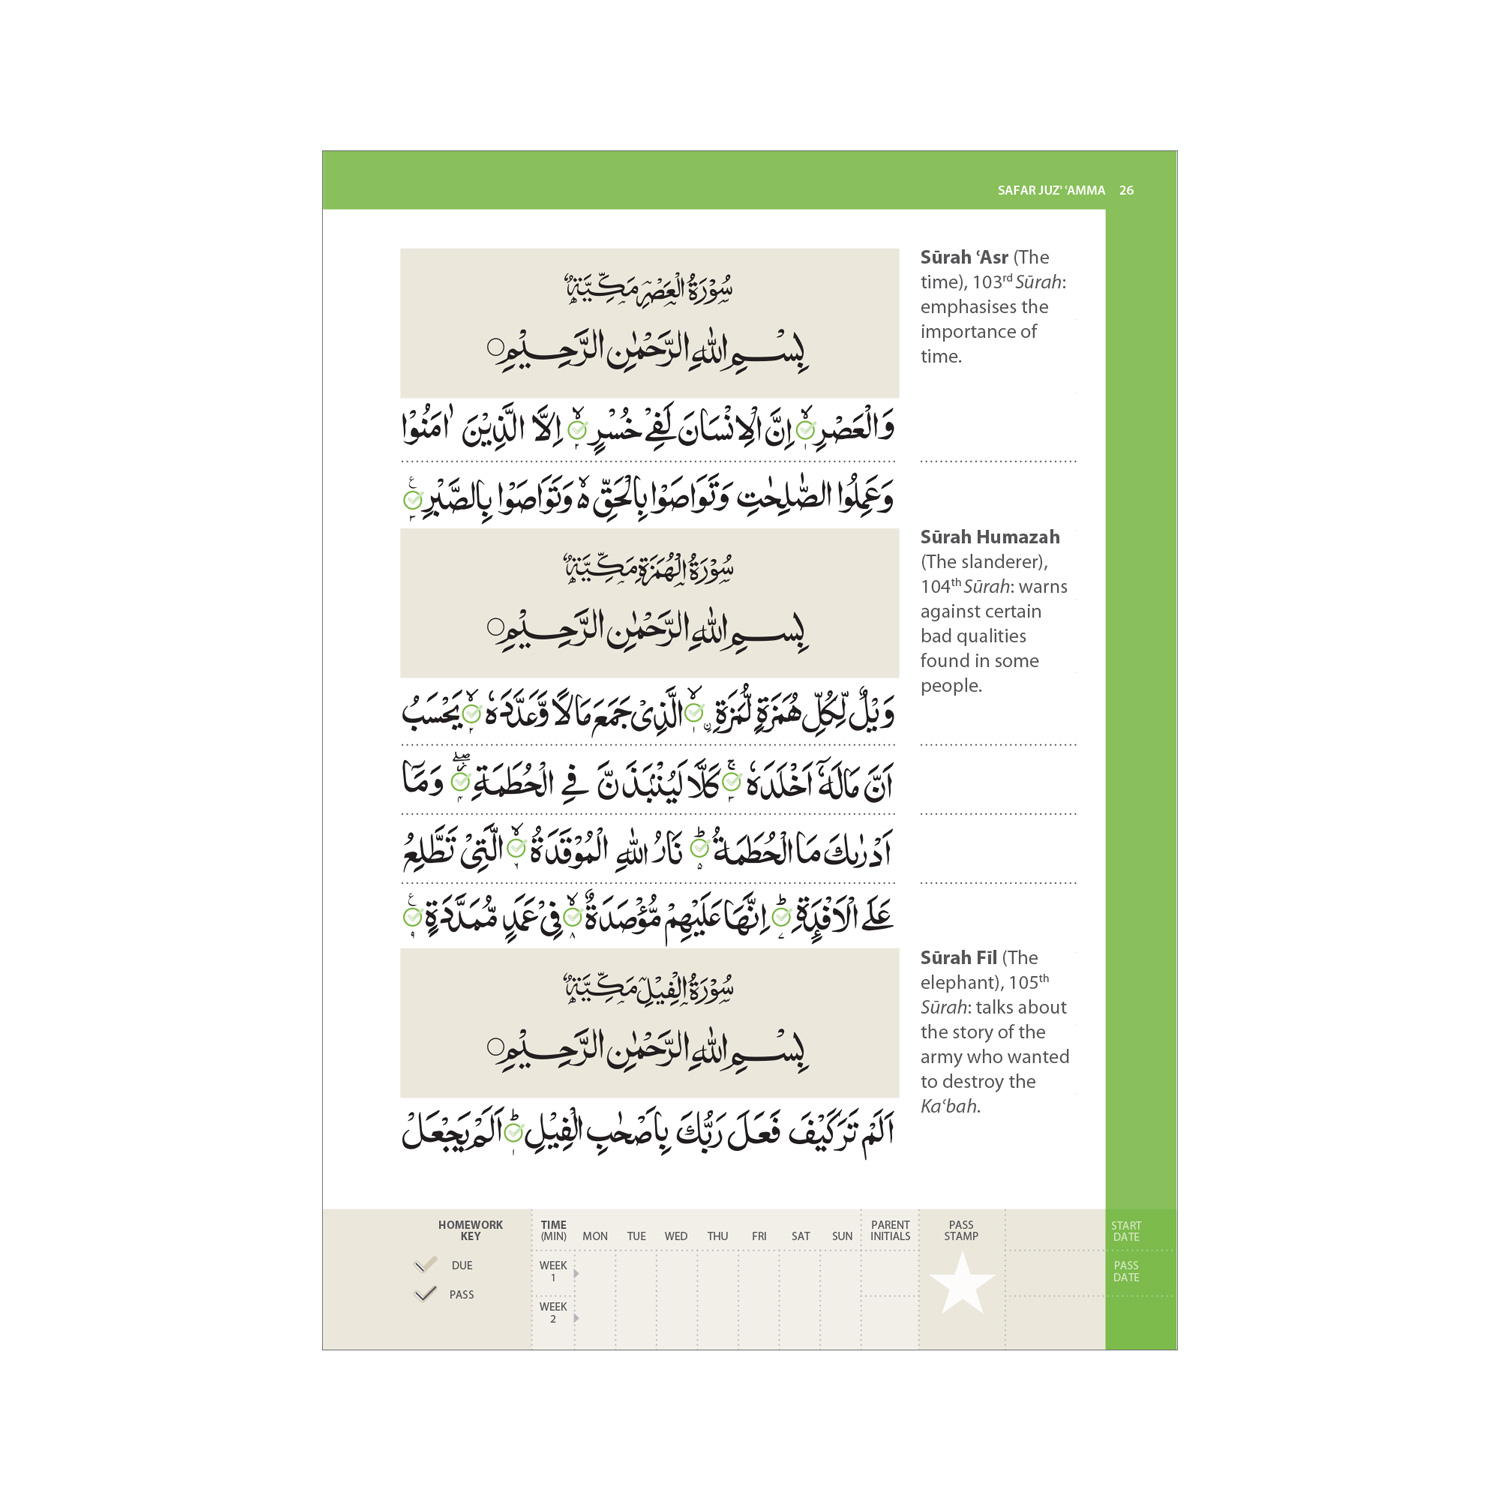 SAFAR JUZ’ ‘AMMA 26
سُوْرَةُ الْعَصْرِ مَكِّيَّةٌ
بِسْمِ اللّٰهِ الرَّحْمٰنِ الرَّحِيْمِ○
وَالْعَصْرِ ۙ۝۱ اِنَّ الْاِنْسَانَ لَفِيْ خُسْرٍ ۙ۝۲ اِلَّا الَّذِيْنَ اٰمَنُوْا
وَعَمِلُوا الصّٰلِحٰتِ وَتَوَاصَوْا بِالْحَقِّ ۙ۬ وَتَوَاصَوْا بِالصَّبْرِ ۝۳ ع
Sūrah ‘Asr (The
time), 103rd Sūrah:
emphasises the
importance of
time.
سُوْرَةُ الْهُمَزَةِ مَكِّيَّةٌ
بِسْمِ اللّٰهِ الرَّحْمٰنِ الرَّحِيْمِ○
وَيْلٌ لِّكُلِّ هُمَزَةٍ لُّمَزَةِ ۙ۝۱ ۨ الَّذِيْ جَمَعَ مَالًا وَّعَدَّدَهٗ ۙ۝۲ يَحْسَبُ
اَنَّ مَالَهٗۤ اَخْلَدَهٗ ۚ۝۳ كَلَّا لَيُنْۢبَذَنَّ فِي الْحُطَمَةِ ۖ۝۴ وَمَاۤ
اَدْرٰىكَ مَا الْحُطَمَةُ ؕ۝۵ نَارُ اللّٰهِ الْمُوْقَدَةُ ۙ۝۶ الَّتِيْ تَطَّلِعُ
عَلَى الْاَفْـِٕدَةِ ؕ۝۷ اِنَّهَا عَلَيْهِمْ مُّؤْصَدَةٌ ۙ۝۸ فِيْ عَمَدٍ مُّمَدَّدَةٍ ۝۹ ع
Sūrah Humazah
(The slanderer),
104th Sūrah: warns
against certain
bad qualities
found in some
people.
سُوْرَةُ الْفِيْلِ مَكِّيَّةٌ
بِسْمِ اللّٰهِ الرَّحْمٰنِ الرَّحِيْمِ○
اَلَمْ تَرَ كَيْفَ فَعَلَ رَبُّكَ بِاَصْحٰبِ الْفِيْلِ ؕ۝۱ اَلَمْ يَجْعَلْ
Sūrah Fīl (The
elephant), 105th
Sūrah: talks about
the story of the
army who wanted
to destroy the
Ka‘bah.
HOMEWORK
KEY
DUE
PASS
TIME
(MIN) MON TUE WED THU FRI SAT SUN
WEEK
1
WEEK
2
PARENT
INITIALS
PASS
STAMP
START
DATE
PASS
DATE